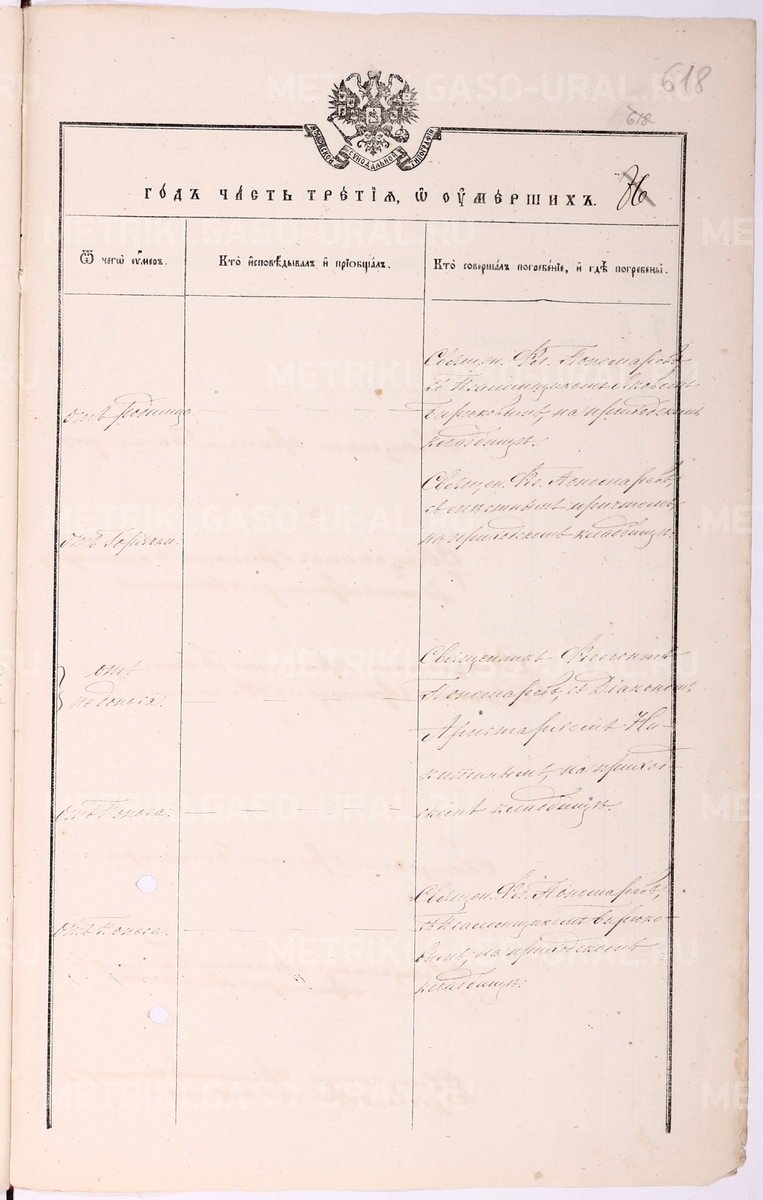 618
618
МОСКОВСКОЕ СѴНОДАЛЬНОЙ ТИПОГРАФІИ
ГО́ДЪ ЧА́СТЬ ТРЕ́ТІѦ, Ѡ҆ ОУ҆МЕ́РШИХЪ.
Ѿ чегѡ̀ ᲂу҆́меръ.
Кто̀ и҆сповѣ́дывалъ и҆ прїѻбща́лъ.
Кто̀ соверша́лъ погребе́нїе, и҆ гдѣ̀ погребены̀.
отъ Родимца
Священ. Фл. Пономаревъ
съ Псаломщикомъ Яковомъ
Бирюковымъ, на приходскомъ
кладбищѣ.
отъ Горячки.
Священ. Фл. Пономаревъ,
съ причтомъ,
на приходскомъ кладбищѣ.
отъ
поноса.
Священникъ Флегонтъ
Пономаревъ, съ Діакономъ
Аристархомъ Ни-
китинымъ, на приход-
скомъ кладбищѣ.
отъ Поноса.
отъ Поноса.
Священ. Фл. Пономаревъ,
съ Псаломщикомъ Бирюко-
вымъ, на приходскомъ
кладбищѣ.
METRIKI.GASO-URAL.RU